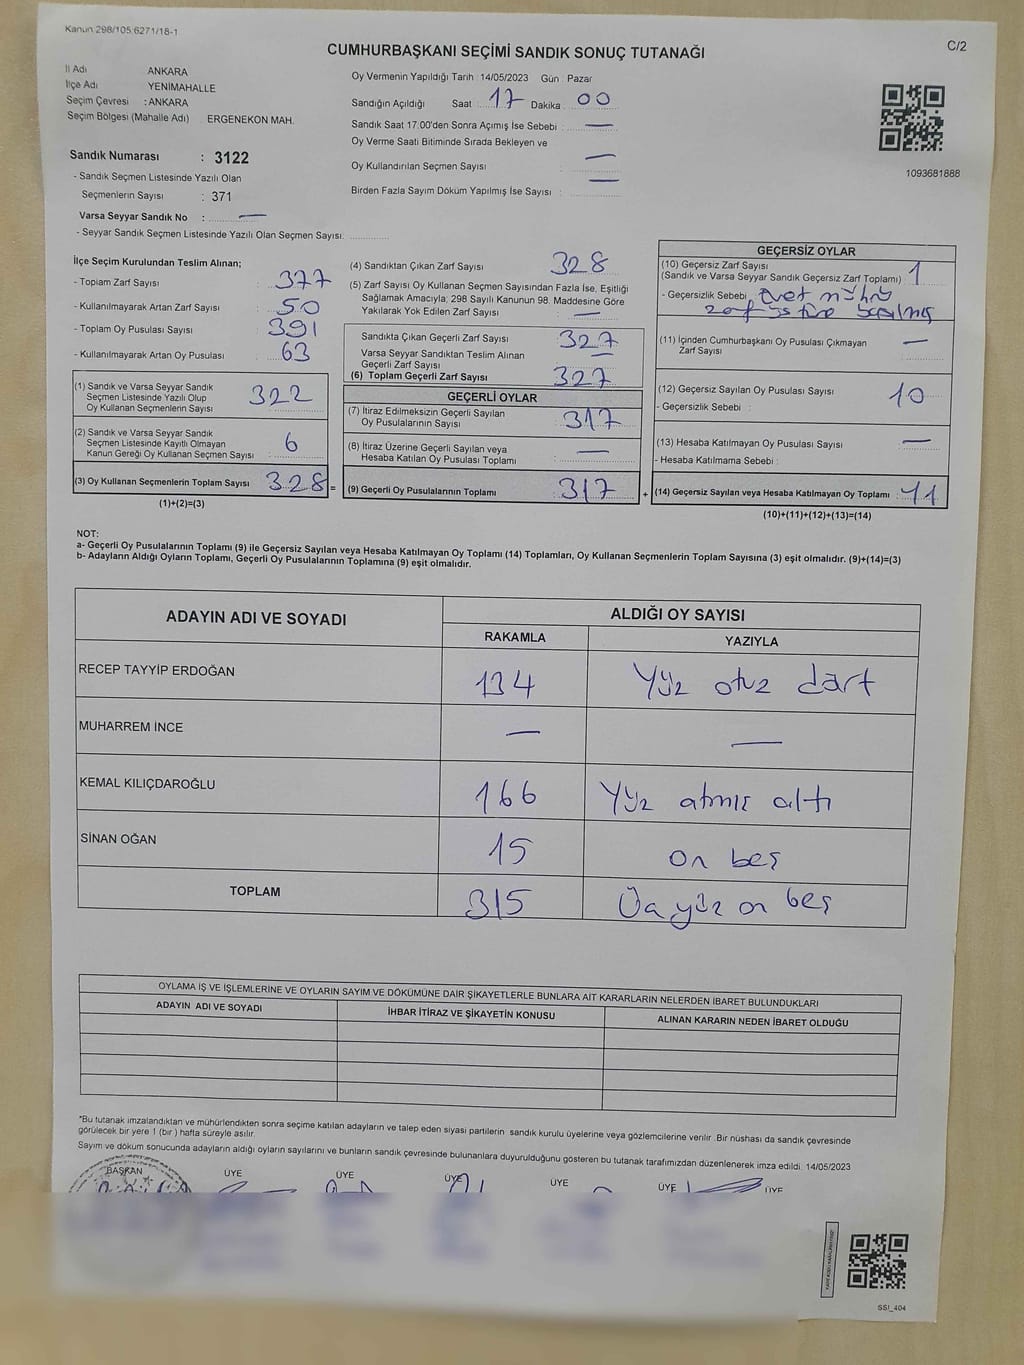 Kanun 298/105:6271/18-1
CUMHURBAŞKANI SEÇİMİ SANDIK SONUÇ TUTANAĞI
C/2
İl Adı ANKARA
İlçe Adı YENİMAHALLE
Seçim Çevresi : ANKARA
Seçim Bölgesi (Mahalle Adı) ERGENEKON MAH.
Sandık Numarası : 3122
- Sandık Seçmen Listesinde Yazılı Olan
Seçmenlerin Sayısı : 371
Varsa Seyyar Sandık No : —
- Seyyar Sandık Seçmen Listesinde Yazılı Olan Seçmen Sayısı:
Oy Vermenin Yapıldığı Tarih : 14/05/2023 Gün : Pazar
Sandığın Açıldığı Saat : 17 Dakika : 00
Sandık Saat 17:00'den Sonra Açımış İse Sebebi : —
Oy Verme Saati Bitiminde Sırada Bekleyen ve
Oy Kullandırılan Seçmen Sayısı : —
Birden Fazla Sayım Döküm Yapılmış İse Sayısı : —
1093681888
İlçe Seçim Kurulundan Teslim Alınan;
- Toplam Zarf Sayısı : 377
- Kullanılmayarak Artan Zarf Sayısı : 50
- Toplam Oy Pusulası Sayısı : 391
- Kullanılmayarak Artan Oy Pusulası : 63
(1) Sandık ve Varsa Seyyar Sandık
Seçmen Listesinde Yazılı Olup
Oy Kullanan Seçmenlerin Sayısı : 322
(2) Sandık ve Varsa Seyyar Sandık
Seçmen Listesinde Kayıtlı Olmayan
Kanun Gereği Oy Kullanan Seçmen Sayısı : 6
(3) Oy Kullanan Seçmenlerin Toplam Sayısı : 328 =
(1)+(2)=(3)
(4) Sandıktan Çıkan Zarf Sayısı : 328
(5) Zarf Sayısı Oy Kullanan Seçmen Sayısından Fazla İse, Eşitliği
Sağlamak Amacıyla; 298 Sayılı Kanunun 98. Maddesine Göre
Yakılarak Yok Edilen Zarf Sayısı : —
Sandıkta Çıkan Geçerli Zarf Sayısı : 327
Varsa Seyyar Sandıktan Teslim Alınan
Geçerli Zarf Sayısı : —
(6) Toplam Geçerli Zarf Sayısı : 327
GEÇERLİ OYLAR
(7) İtiraz Edilmeksizin Geçerli Sayılan
Oy Pusulalarının Sayısı : 317
(8) İtiraz Üzerine Geçerli Sayılan veya
Hesaba Katılan Oy Pusulası Toplamı : —
(9) Geçerli Oy Pusulalarının Toplamı : 317 +
GEÇERSİZ OYLAR
(10) Geçersiz Zarf Sayısı
(Sandık ve Varsa Seyyar Sandık Geçersiz Zarf Toplamı) : 1
- Geçersizlik Sebebi : Evet mührü
zarf üstüne basılmış
(11) İçinden Cumhurbaşkanı Oy Pusulası Çıkmayan
Zarf Sayısı : —
(12) Geçersiz Sayılan Oy Pusulası Sayısı : 10
- Geçersizlik Sebebi :
(13) Hesaba Katılmayan Oy Pusulası Sayısı : —
- Hesaba Katılmama Sebebi :
(14) Geçersiz Sayılan veya Hesaba Katılmayan Oy Toplamı : 11
(10)+(11)+(12)+(13)=(14)
NOT:
a- Geçerli Oy Pusulalarının Toplamı (9) ile Geçersiz Sayılan veya Hesaba Katılmayan Oy Toplamı (14) Toplamları, Oy Kullanan Seçmenlerin Toplam Sayısına (3) eşit olmalıdır. (9)+(14)=(3)
b- Adayların Aldığı Oyların Toplamı, Geçerli Oy Pusulalarının Toplamına (9) eşit olmalıdır.
ADAYIN ADI VE SOYADI
ALDIĞI OY SAYISI
RAKAMLA YAZIYLA
RECEP TAYYİP ERDOĞAN 134 Yüz otuz dört
MUHARREM İNCE — —
KEMAL KILIÇDAROĞLU 166 Yüz atmış altı
SİNAN OĞAN 15 on beş
TOPLAM 315 Üçyüz on beş
OYLAMA İŞ VE İŞLEMLERİNE VE OYLARIN SAYIM VE DÖKÜMÜNE DAİR ŞİKAYETLERLE BUNLARA AİT KARARLARIN NELERDEN İBARET BULUNDUKLARI
ADAYIN ADI VE SOYADI İHBAR İTİRAZ VE ŞİKAYETİN KONUSU ALINAN KARARIN NEDEN İBARET OLDUĞU
*Bu tutanak imzalandıktan ve mühürlendikten sonra seçime katılan adayların ve talep eden siyasi partilerin sandık kurulu üyelerine veya gözlemcilerine verilir .Bir nüshası da sandık çevresinde
görülecek bir yere 1 (bir ) hafta süreyle asılır.
Sayım ve döküm sonucunda adayların aldığı oyların sayılarını ve bunların sandık çevresinde bulunanlara duyurulduğunu gösteren bu tutanak tarafımızdan düzenlenerek imza edildi. 14/05/2023
BAŞKAN ÜYE ÜYE ÜYE ÜYE ÜYE ÜYE
SSI_404